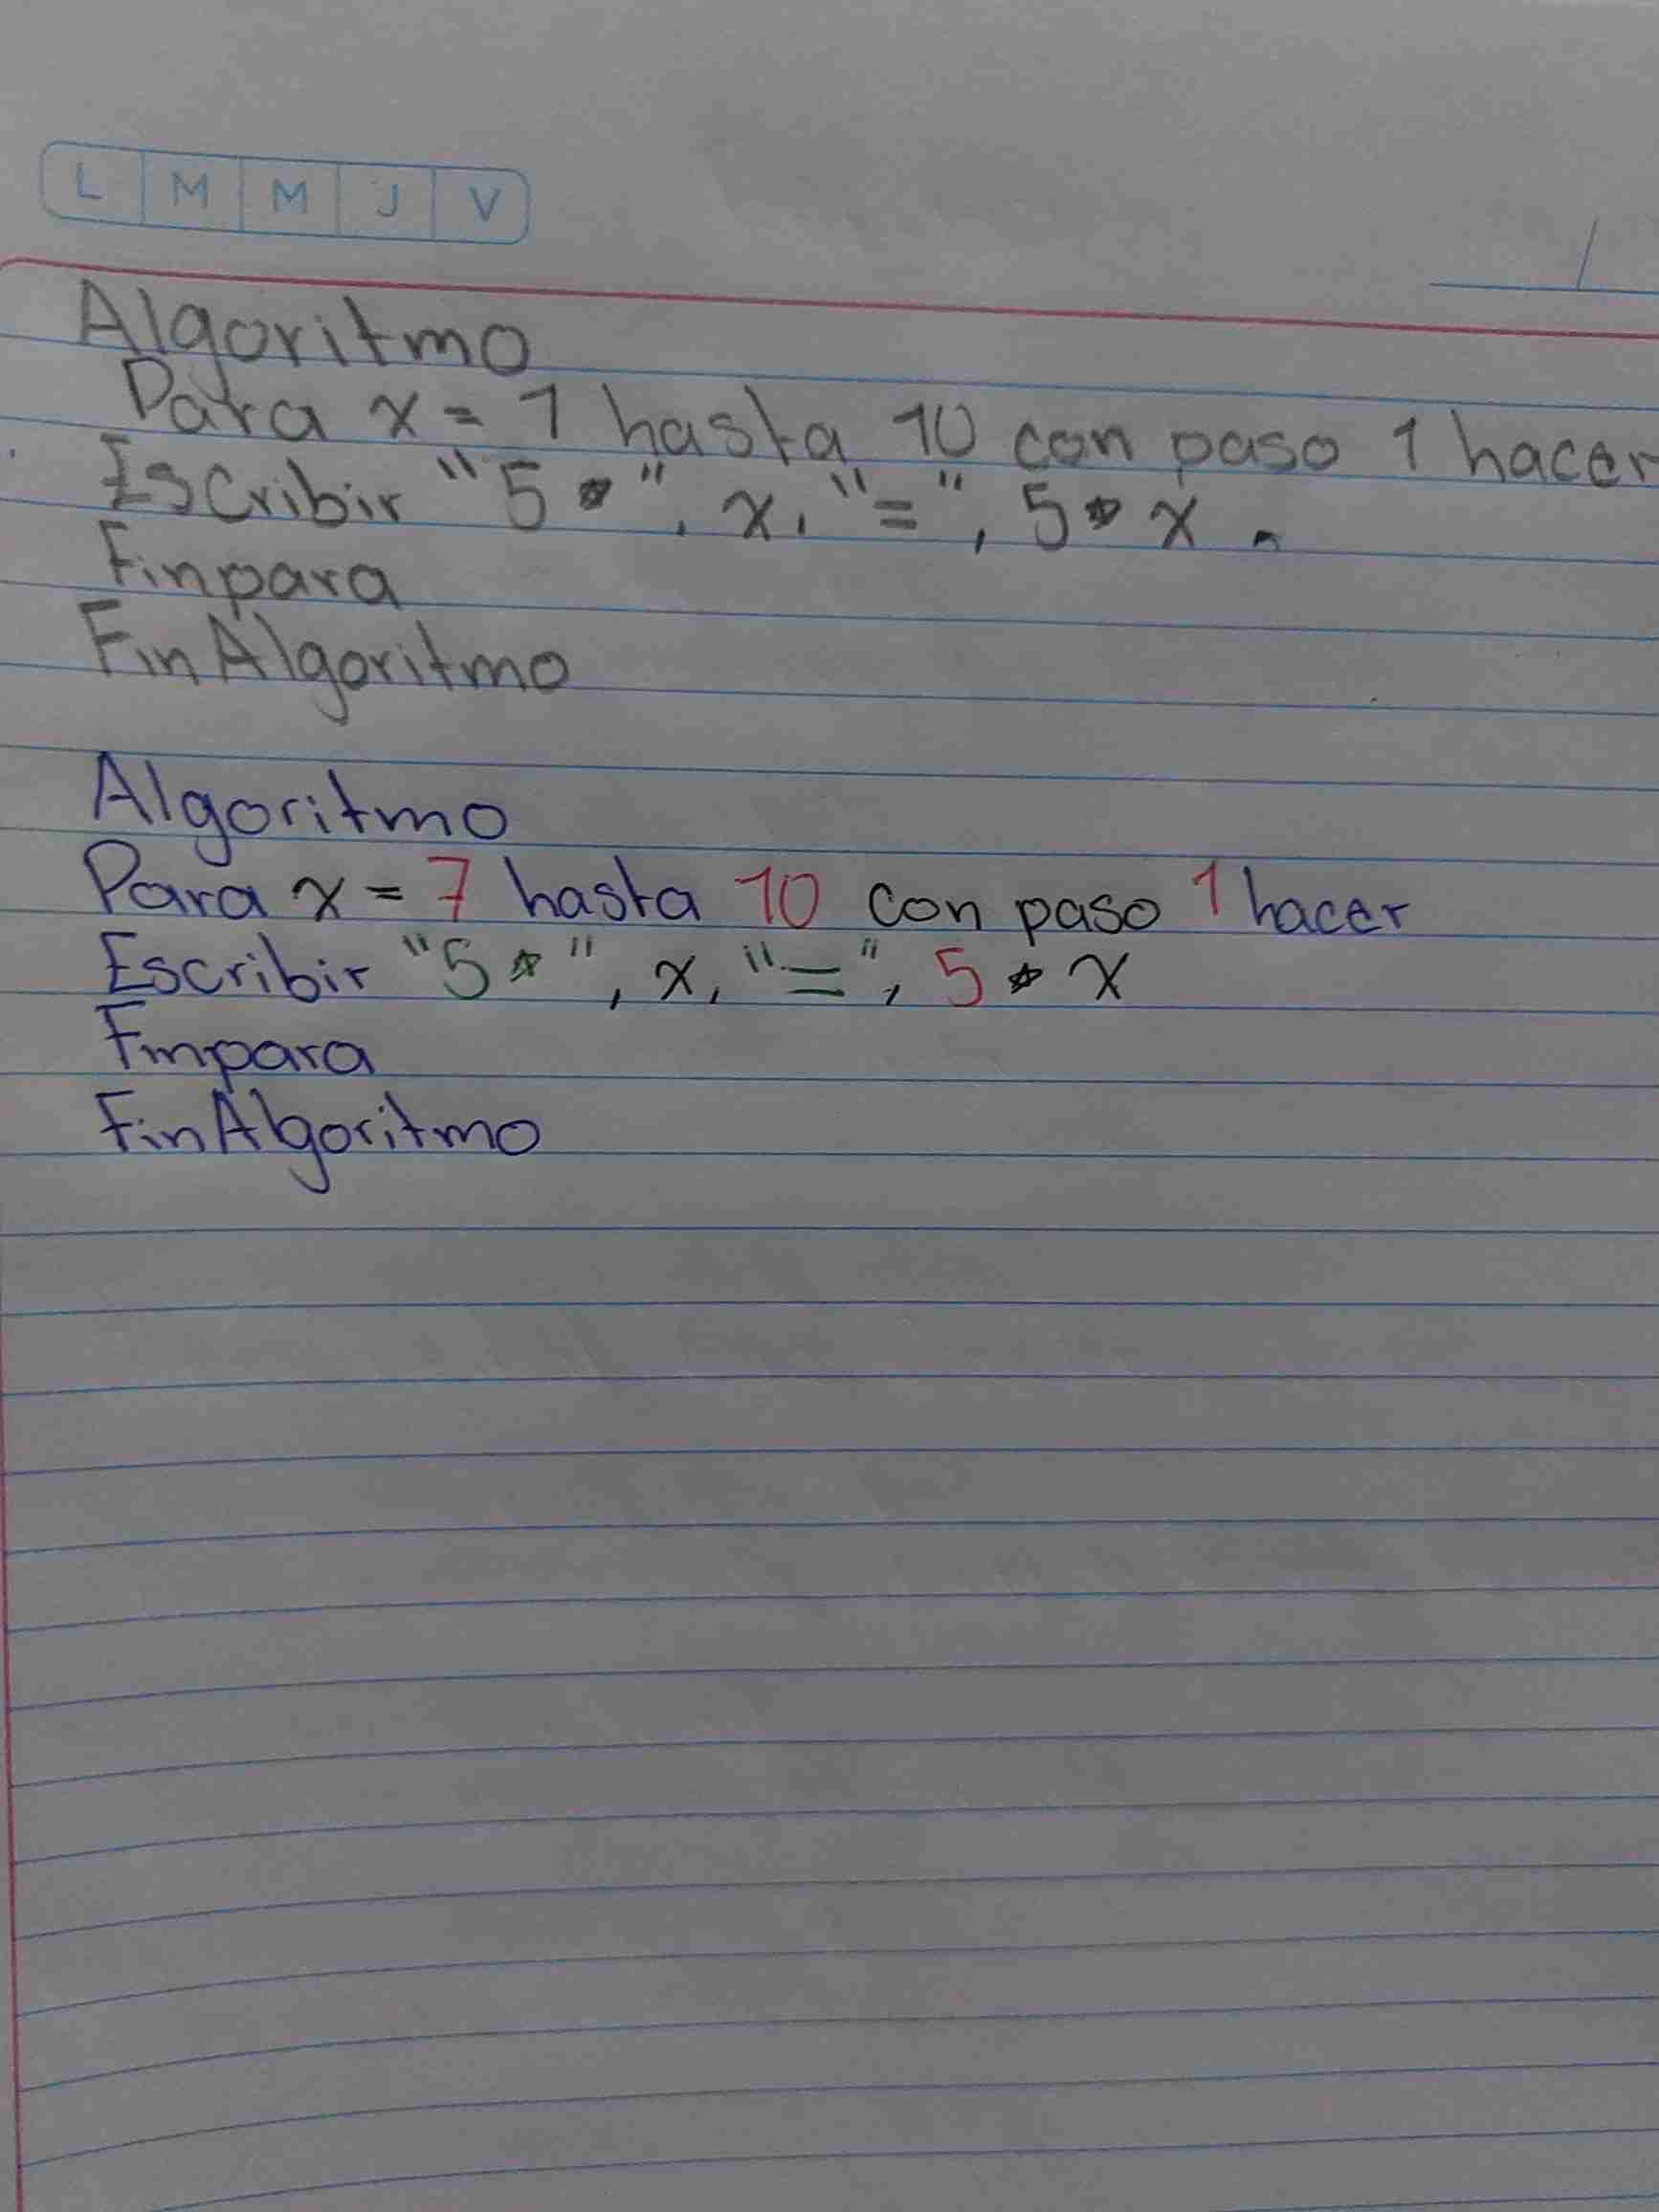 L M M J V
/
Algoritmo
Para x = 1 hasta 10 con paso 1 hacer
Escribir "5 *", x, "=", 5 * x .
Finpara
FinAlgoritmo
Algoritmo
Para x = 7 hasta 10 con paso 1 hacer
Escribir "5 *", x, "=", 5 * x
Finpara
FinAlgoritmo